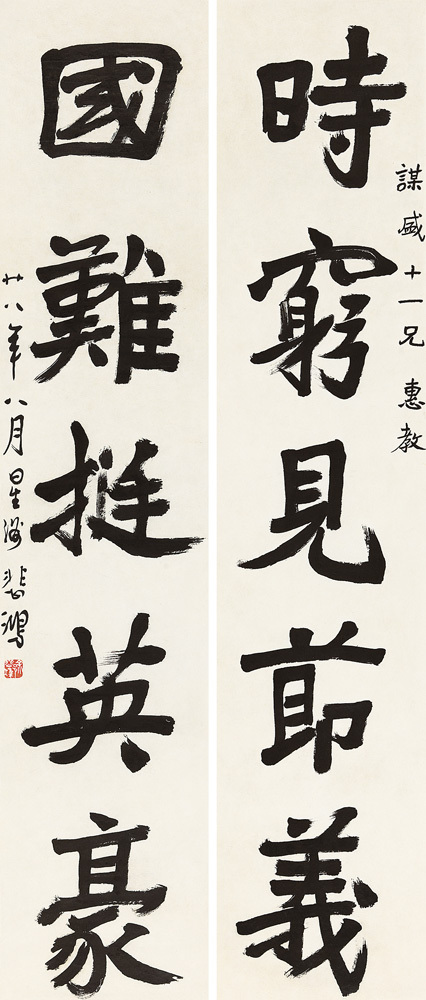 謀盛十一兄 惠教
時窮見節義
國難挺英豪
廿八年八月星洲 悲鴻